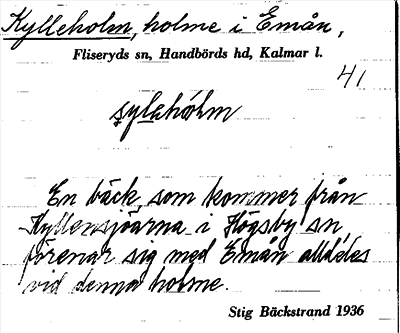 Kylleholm, holme i Emån,
Fliseryds sn, Handbörds hd, Kalmar l.
41
syleholm
En bäck, som kommer från
Kyllensjöarna i Högsby sn
förenar sig med Emån alldeles
vid denna holme.
Stig Bäckstrand 1936